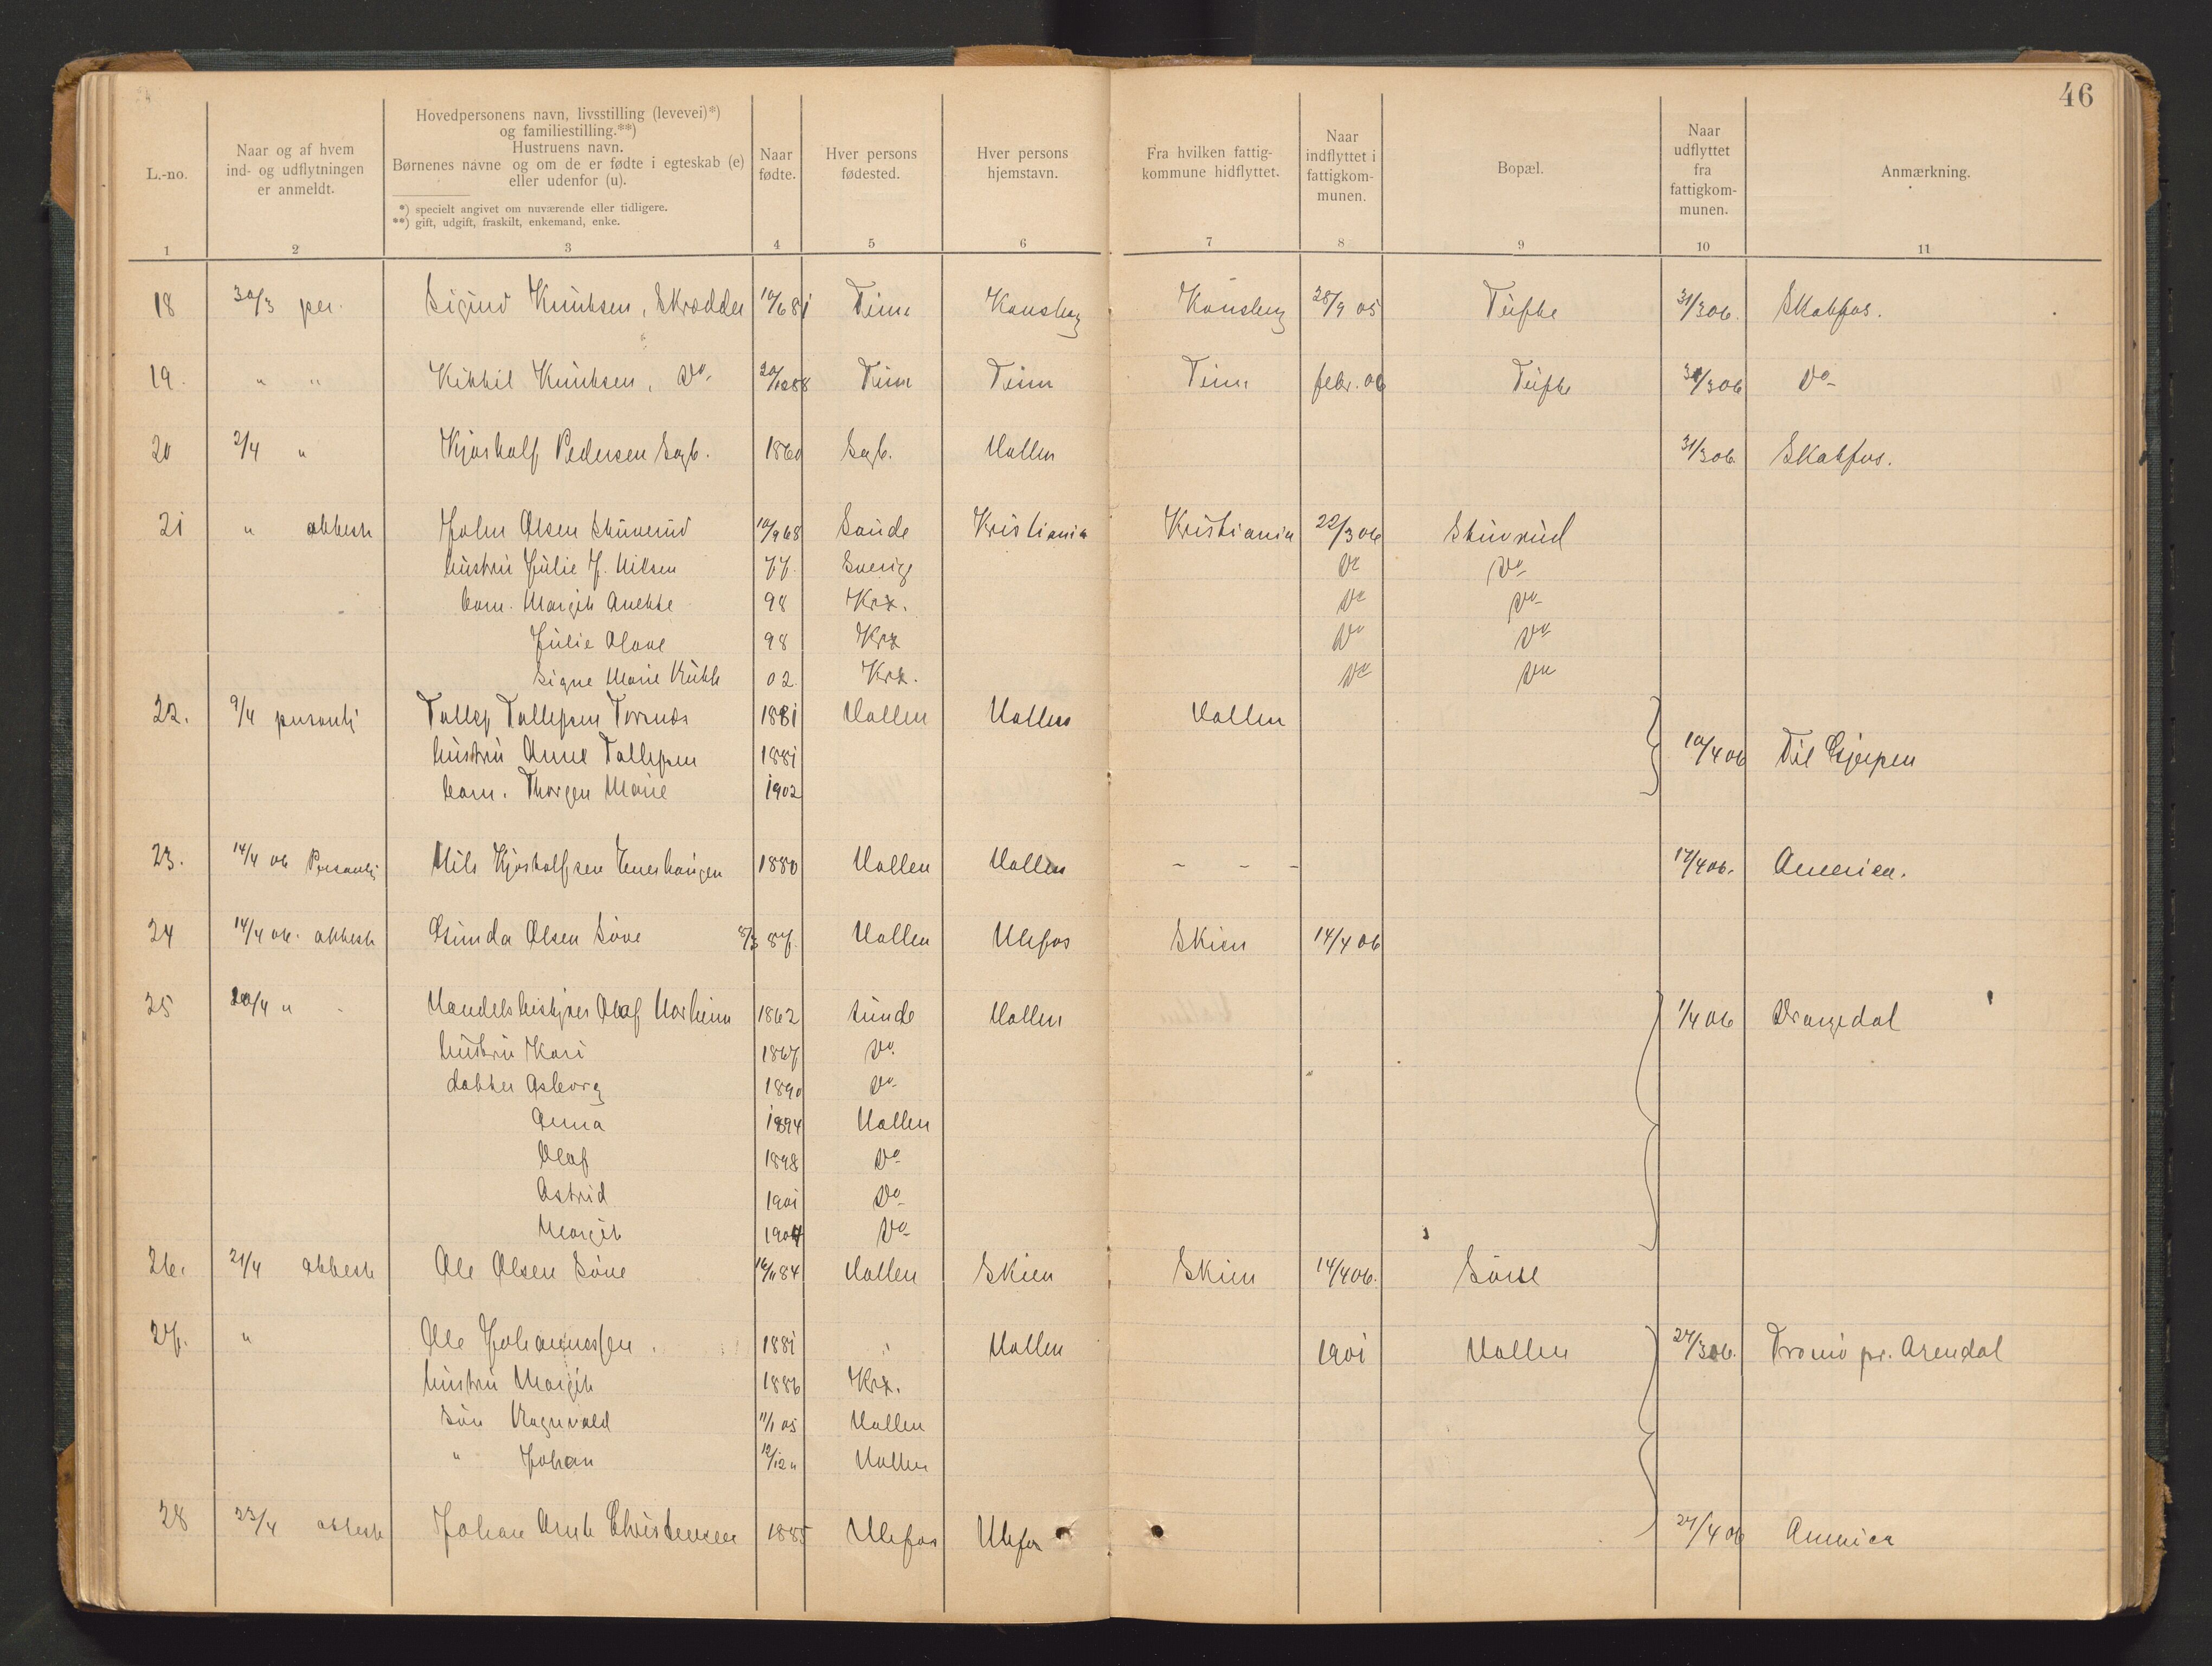 46
L.-no.
Naar og af hvem ind- og udflytningen er anmeldt.
Hovedpersonens navn, livsstilling (levevei)*) og familiestilling.**)
Hustruens navn.
Børnenes navne og om de er fødte i egteskab (e) eller udenfor (u).
*) specielt angivet om nuværende eller tidligere.
**) gift, udgift, fraskilt, enkemand, enke.
Naar fødte.
Hver persons fødested.
Hver persons hjemstavn.
Fra hvilken fattigkommune hidflyttet.
Naar indflyttet i fattigkommunen.
Bopæl.
Naar udflyttet fra fattigkommunen.
Anmærkning.
1 2 3 4 5 6 7 8 9 10 11
18 30/3 per. Sigurd Knutsen, Skrædder 10/6 81 Tinn Konsberg Konsberg 28/9 05 Tufte 31/3 06. Skotfos.
19. " " Kittil Knutsen, Do 20/12 88 Tinn Tinn Tinn febr. 06 Tufte 31/3 06 Do
20 2/4 " Kjostolf Pedersen 1860 Hollen 31/3 06. Skotfos.
21 " attest John Olsen 10/9 68 Sande Kristiania Kristiania 22/3 06
hustru Julie J. Nilsen 77. Sverige Do Do
barn. Margit Anette 98 Kra. Do Do
Julie Olave 98 Kra Do Do
Signe Marie Ruth 02 Kra. Do Do
22. 9/4 personlj Tollef Tollefsen 1881 Hollen Hollen Hollen
hustru Anne Tollefsen 1881 10/4 06 Til Gjerpen
barn. Thorgen Marie 1902
23. 14/4 06 Personlj Nils Kjostolfsen 1880 Hollen Hollen - - - 17/4 06. America.
24 14/4 06. attest Gunda Olsen Söve 8/3 87. Hollen Ulefos Skien 14/4 06
25 20/4 " Handelsbestyrer Olaf Norheim 1862 Hollen 1/4 06 Drangedal
hustru Kari 1867 Do
datter Asborg 1890 Do
Anna 1894 Hollen
Olaf 1898 Do
Astrid 1901 Do
Margit 1904 Do
26. 21/4 attest Ole Olsen Söve 16/11 84 Hollen Skien Skien 14/4 06. Söve
27. " Ole Johannessen. 1881 " Hollen 1901 Hollen 27/3 06. Tromö pr. Arendal
hustru Margit 1886 Kra.
Sön Ragnvald 11/1 05 Hollen
" Johan 12/12 " Hollen
28 23/4 attest Johan Arnt Christensen 1885 Ulefos Ulefos 27/4 06 America